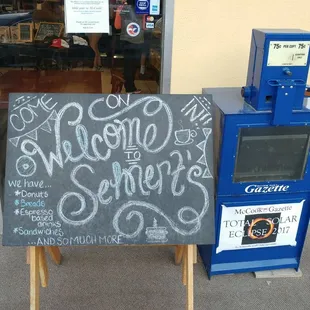 COME ON IN!!
Welcome
TO
Sehnert's
WE HAVE...
*Donuts
*Breads
*Espresso
based
drinks
*Sandwiches
...AND SO MUCH MORE
75¢ PER COPY 75¢
Gazette
McCook Gazette
TOTAL SOLAR
ECLIPSE 2017